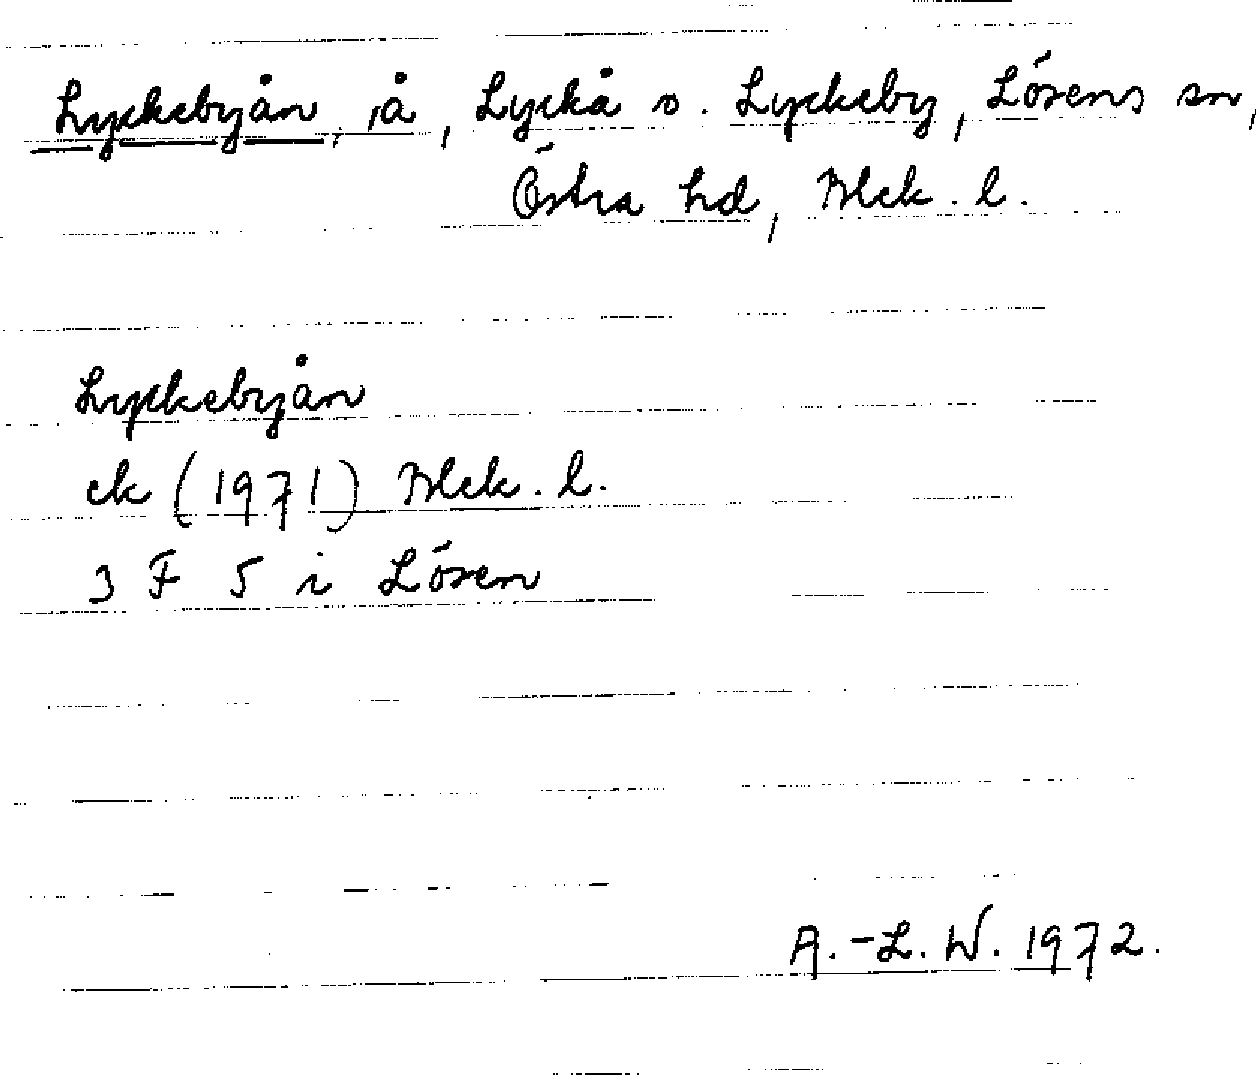 Lyckebyån, å, Lyckå o. Lyckeby, Lösens sn,
Östra hd, Blek. l.
Lyckebyån
ek (1971) Blek. l.
3 F 5 i Lösen
A.-L. W. 1972.